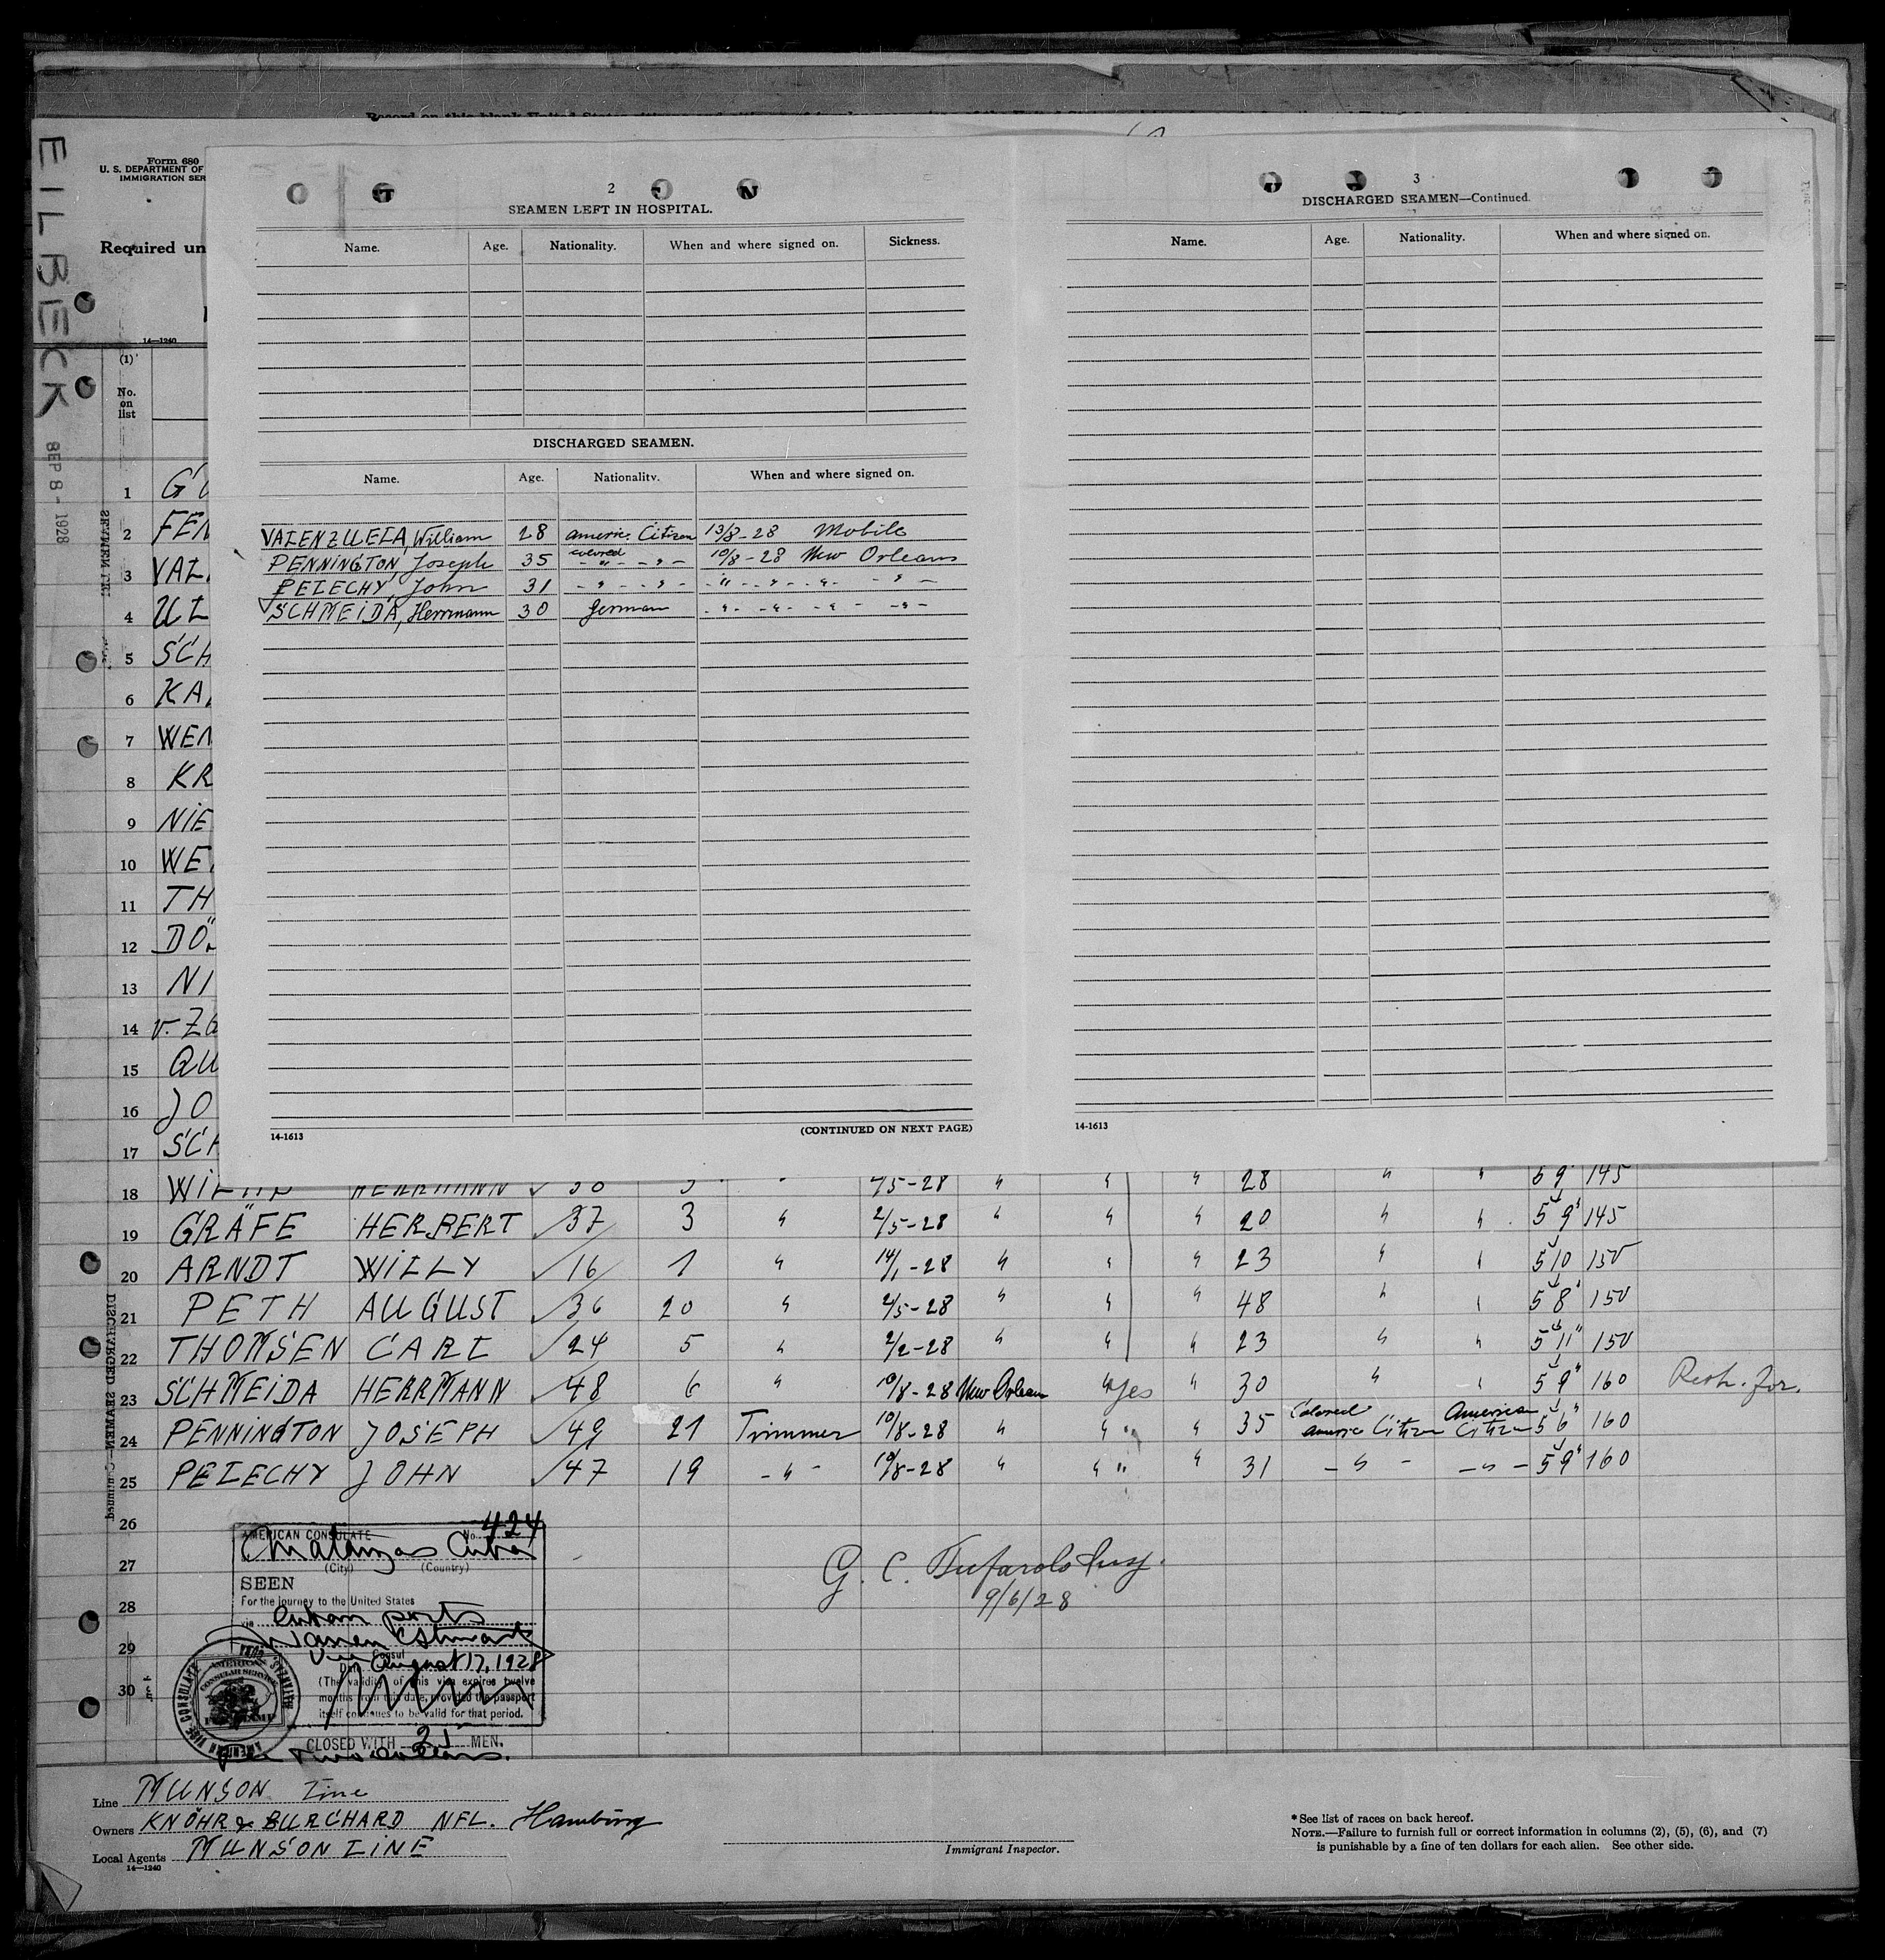 EILBECK
SEP 8 - 1928
Form 680
U. S. DEPARTMENT OF
IMMIGRATION SER
Required un
14—1240
(1)
No.
on
list
2
SEAMEN LEFT IN HOSPITAL.
Name. Age. Nationality. When and where signed on. Sickness.
DISCHARGED SEAMEN.
Name. Age. Nationality. When and where signed on.
VALENZUELA, William 28 americ. Citizen 13/8-28 Mobile
PENNINGTON, Joseph 35 colored - " - - " - 10/8-28 New Orleans
PELECHY, John 31 - " - - " - - " - - " - - " - - " -
SCHMEIDA, Herrmann 30 German - " - - " - - " - - " -
14-1613
(CONTINUED ON NEXT PAGE)
3
DISCHARGED SEAMEN—Continued.
Name. Age. Nationality. When and where signed on.
14-1613
1 GU
2 FEN
3 VAL
4 UL
5 SCH
6 KA
7 WEN
8 KR
9 NIE
10 WE
11 TH
12 DÖ
13 NI
14 v. ZA
15 QU
16 JO
17 SCH
18 HERRMANN 5 " 2/5-28 " " " 28 " " 5 9" 145
19 GRÄFE HERBERT 37 3 " 2/5-28 " " " 20 " " 5 9" 145
20 ARNDT WILLY 16 1 " 14/1-28 " " " 23 " " 5 10 150
21 PETH AUGUST 36 20 " 2/5-28 " " " 48 " " 5 8" 150
22 THOMSEN CARL 24 5 " 2/2-28 " " " 23 " " 5 11" 150
23 SCHMEIDA HERRMANN 48 6 " 10/8-28 New Orleans " yes " 30 " " 5 9" 160
24 PENNINGTON JOSEPH 49 21 Trimmer 10/8-28 " " " " 35 Colored americ Citizen American Citizen 5 6" 160
25 PELECHY JOHN 47 19 - " - 10/8-28 " " " " 31 - " - - " - 5 9" 160
26
27
28
29
30
SEAMEN LEFT
DISCHARGED SEAMEN—Continued
AMERICAN CONSULATE No. 424
Matanzas Cuba
(City) (Country)
SEEN
For the journey to the United States
via Cuban ports
Vice Consul
Date August 17, 1928
(The validity of this visa expires twelve
months from this date, provided the passport
itself continues to be valid for that period.
CLOSED WITH 25 MEN.
AMERICAN VICE CONSULATE MATANZAS, CUBA
AMERICAN
CONSULAR SERVICE
G. C. Tufarolo Insp.
9/6/28
Line MUNSON Line
Owners KNÖHR & BURCHARD NFL. Hamburg
Local Agents MUNSON LINE
14—1240
Immigrant Inspector.
* See list of races on back hereof.
NOTE.—Failure to furnish full or correct information in columns (2), (5), (6), and (7)
is punishable by a fine of ten dollars for each alien. See other side.